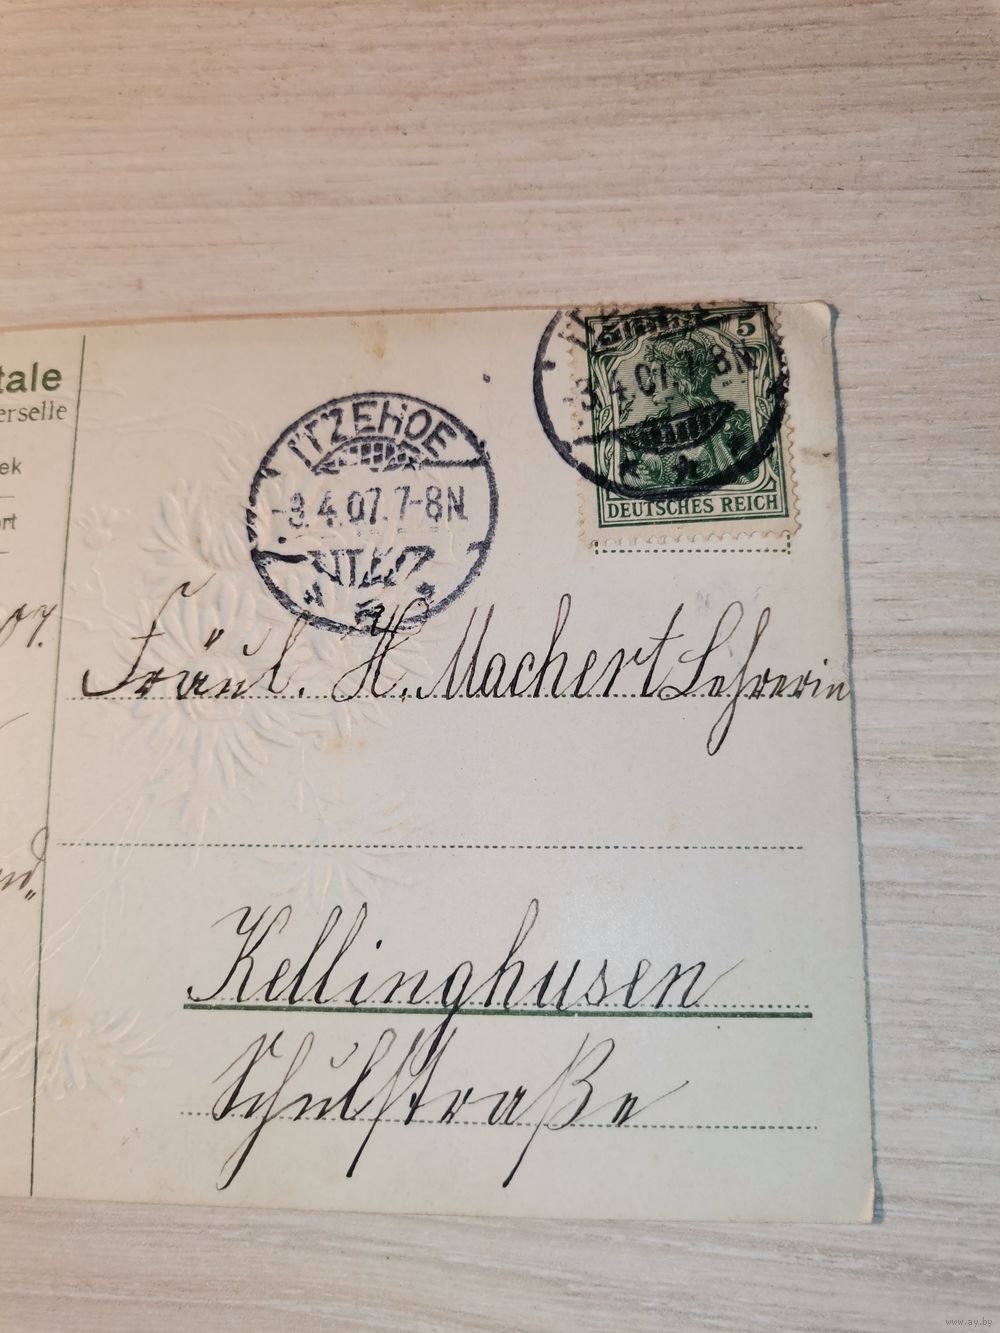 tale
erselle
ek
ort
07.
nd"
ITZEHOE
-3.4.07.7-8N.
3.4.07.7-8N
5 5
DEUTSCHES REICH
Fräul. H. Machert Lehrerin
Kellinghusen
Schulstraße
www.ay.by